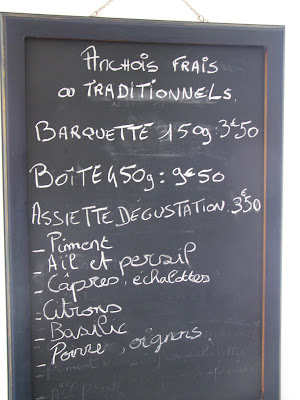 ANCHOIS FRAIS
∞ TRADITIONNELS.
BARQUETTE 150g : 3€50
BOÎTE 450g : 9€50
ASSIETTE DÉGUSTATION. 3€50
- Piment
- Ail et persil
- Câpres, échalottes
- Citrons
- Basilic
- Poivre, oignons.